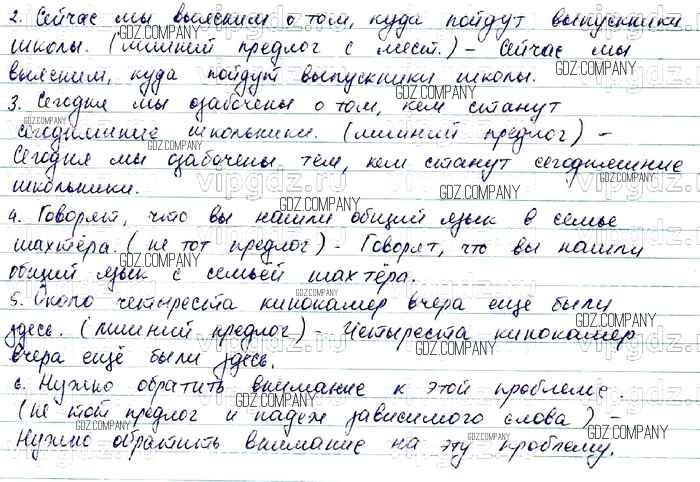 2. Сейчас мы выясним о том, куда пойдут выпускники
школы. (лишний предлог с мест.) – Сейчас мы
выясним, куда пойдут выпускники школы.
3. Сегодня мы озабочены о том, кем станут
сегодняшние школьники. (лишний предлог) –
Сегодня мы озабочены тем, кем станут сегодняшние
школьники.
4. Говорят, что вы нашли общий язык в семье
шахтёра. (не тот предлог) – Говорят, что вы нашли
общий язык с семьёй шахтёра.
5. Около четыреста кинокамер вчера ещё были
здесь. (лишний предлог) – Четыреста кинокамер
вчера ещё были здесь.
6. Нужно обратить внимание к этой проблеме.
(не тот предлог и падеж зависимого слова) –
Нужно обратить внимание на эту проблему.